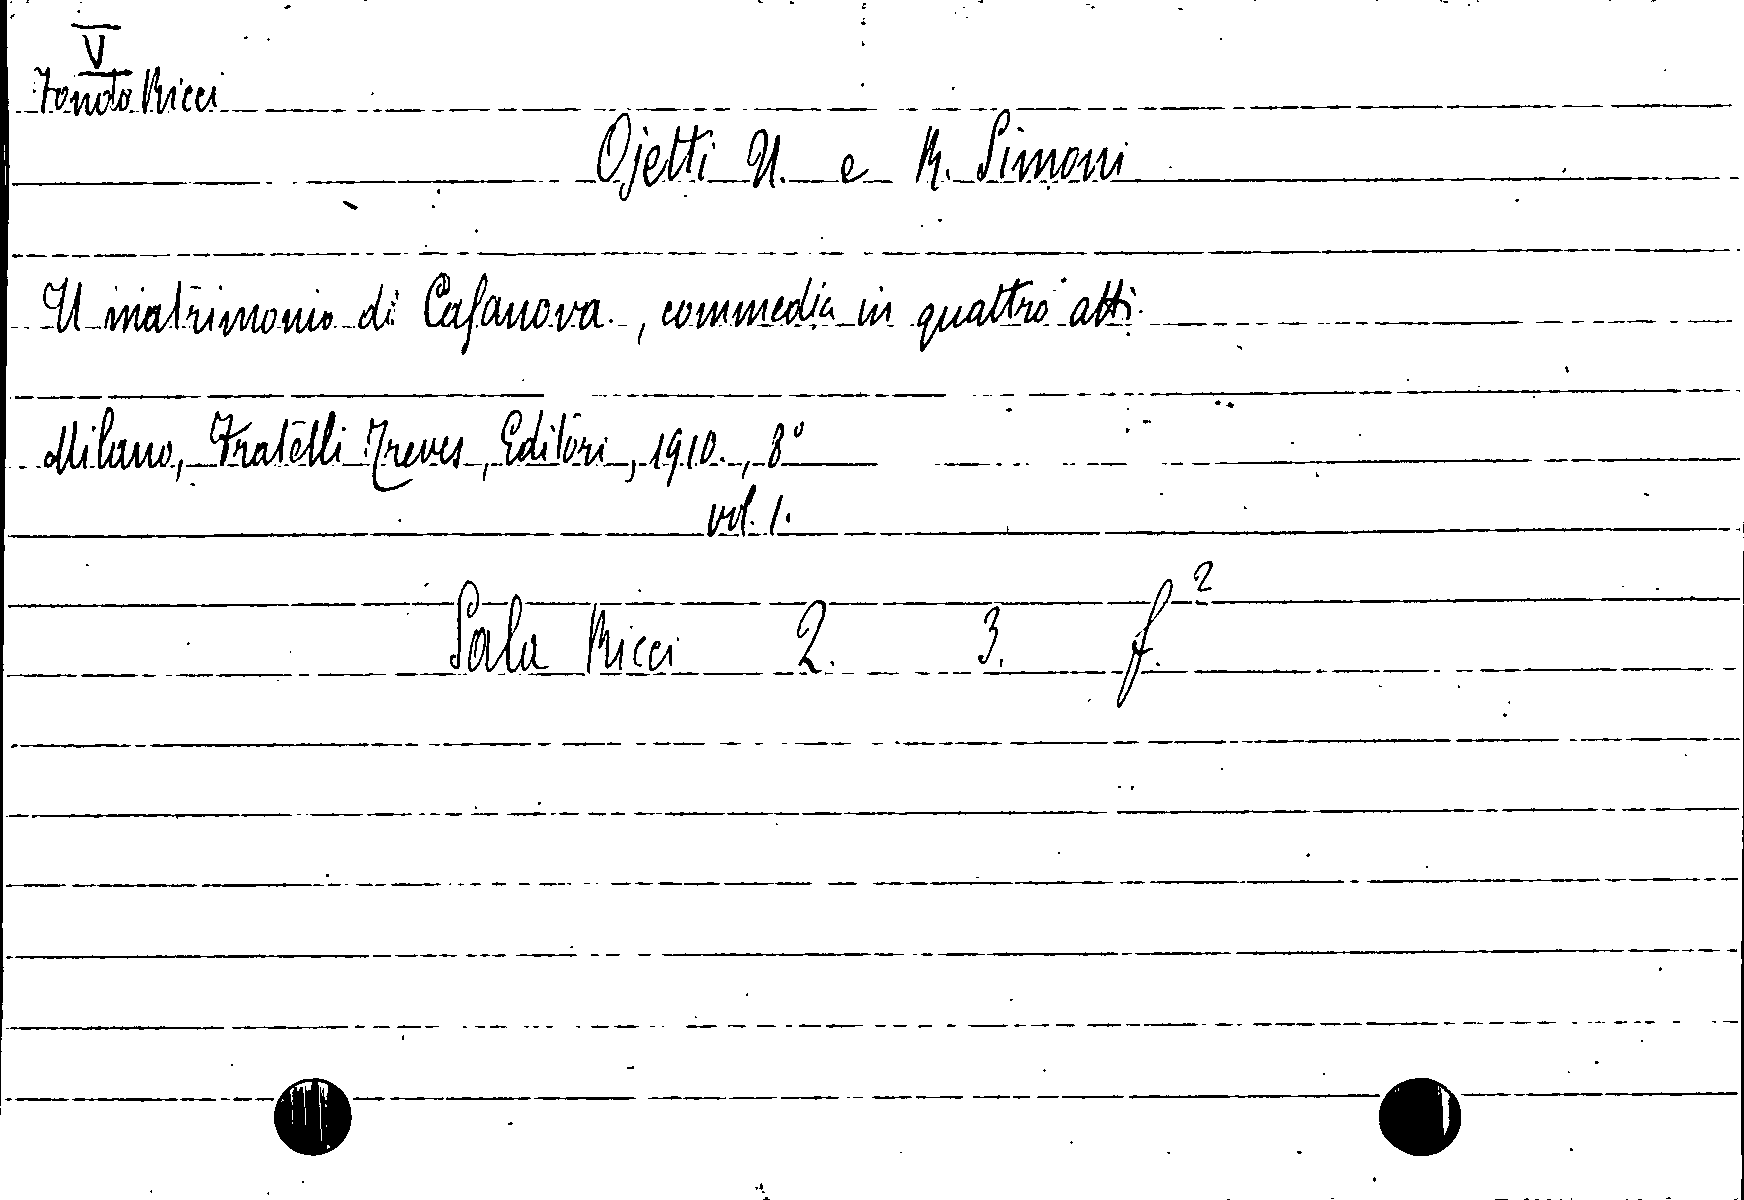 V
Fondo Ricci
Ojetti U. e R. Simoni
Il matrimonio di Casanova., commedia in quattro atti.
Milano, Fratelli Treves, Editori, 1910., 8°
vol. 1.
Sala Ricci 2. 3. f.²